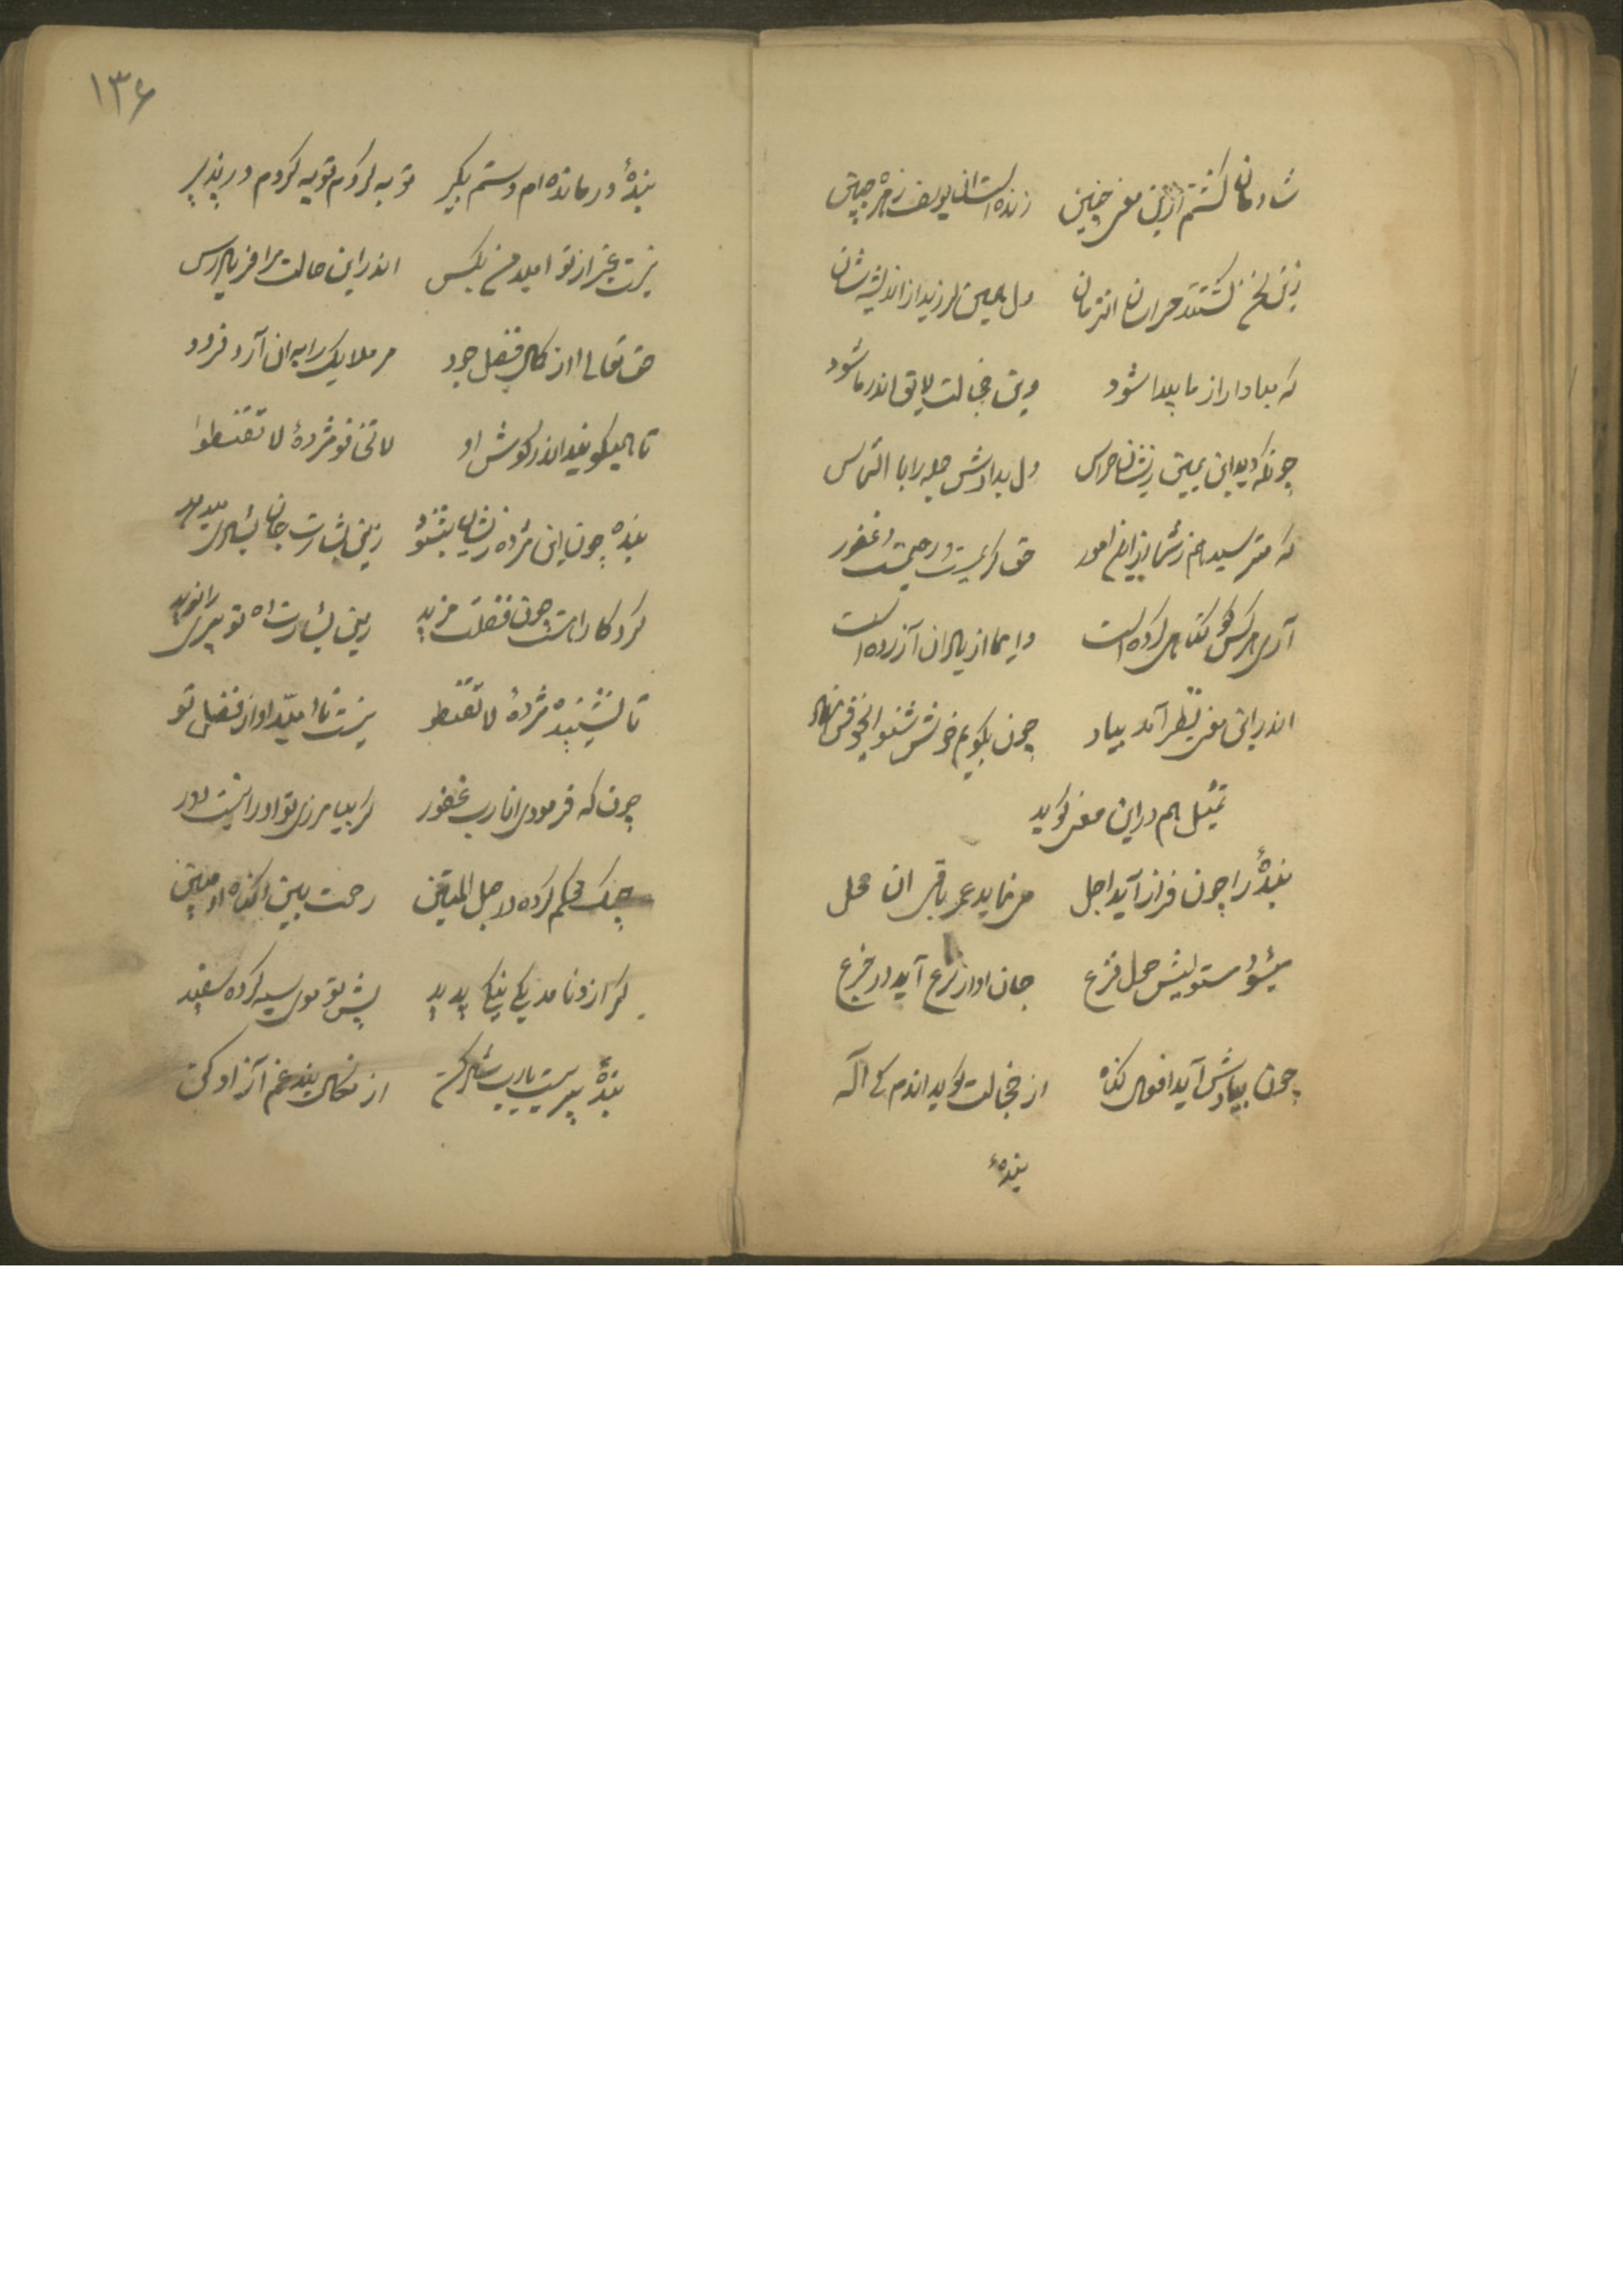 شادمان گشتم ازین معنی چنین زنده است آن یوسف زهره جبین
زین سخن گشتند حیران انزمان دل همین لرزید از اندیشه شان
که مبادا راز ما پیدا شود وین خجالت لایق اندر ما شود
چونکه دید ابن یمین زیشان هراس دل بدادش جمله را با التماس
که مترسید هم ز شما زین امور حق کریمست و رحیمست و غفور
آری هر کس کو گناهی کرده است دایما از یاد آن آزرده است
اندر این معنی نظر آمد بیاد چون بگویم خوش شنو
تمثیل هم در این معنی گوید
بندهٔ را چون فراز آید اجل می نماید عمر باقی ان محل
میشود مستولیش حمل فزع جان او از نزع آید در جزع
چون بیادش آید افعال گناه از خجالت گوید اندم کی اله
بندهٔ
۱۳۶
بندهٔ درمانده ام دستم بگیر توبه کردم توبه کردم در پذیر
نیست غیر از تو امید من بکس اندر این حالت مرا فریاد رس
حق تعالی از کمال فضل جود مر ملایک را به ان آرد فرود
تا همیگویند اندر گوش او لاتخافو مژدهٔ لا تقنطوا
بنده چون این مژده زیشان بشنود زین بشارت جان بشادی میدهد
کردگارا هست چون فضلت مزید زین بشارت ده تو پیری را نوید
تا شنیده مژدهٔ لا تقنطو نیست نا امید او از فضل تو
چون که فرمودی انا رب غفور گر بیامرزی تو او را نیست دور
چنگ محکم کرده در حبل المتین رحمت بین گناه او مبین
گر ازو نامد یکی نیکی پدید پیش تو موی سیه کرده سفید
بندهٔ پیرست یارب شاد کن از بند غم آزاد کن